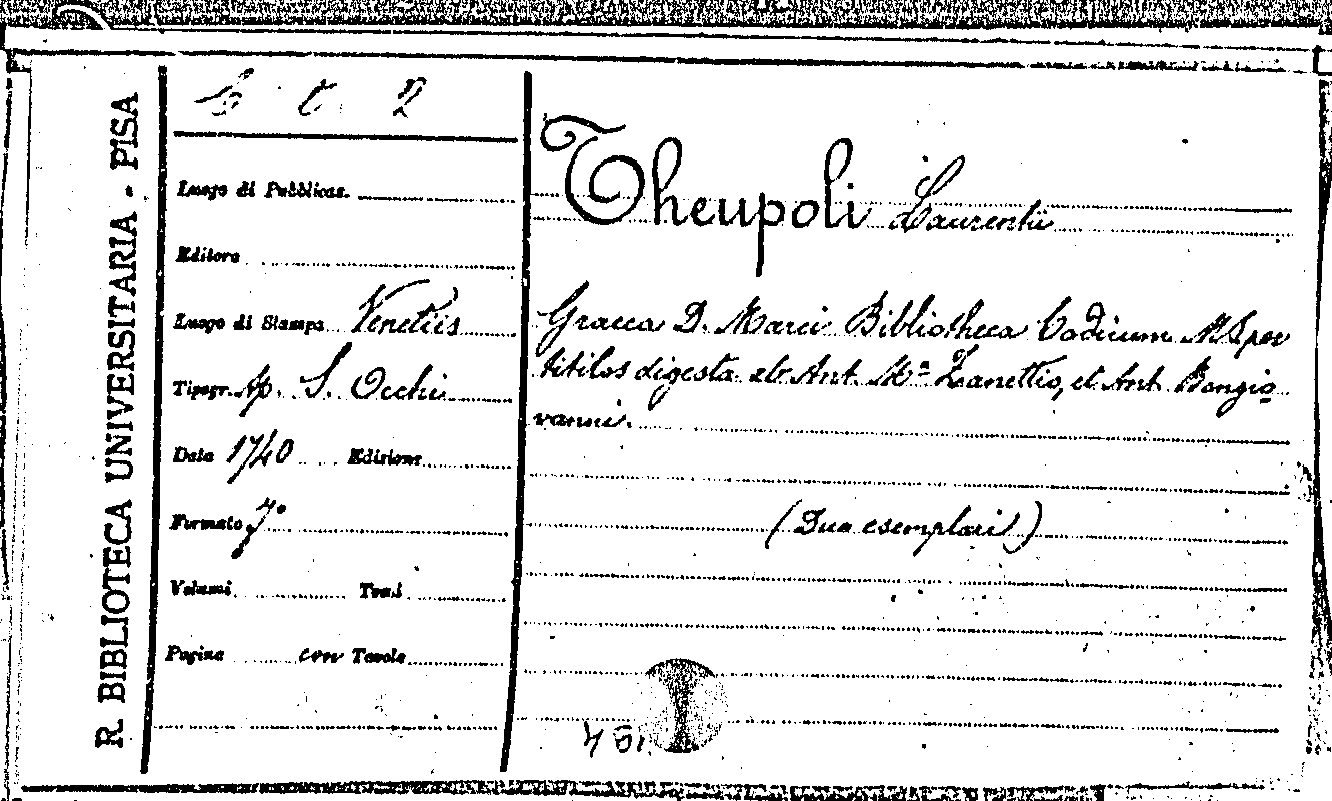 R. BIBLIOTECA UNIVERSITARIA - PISA
Luogo di Pubblicaz.
Editore
Luogo di Stampa Venetiis
Tipogr. Ap. S. Occhi
Data 1740 Edizione
Formato fo
Volumi Tomi
Pagine con Tavole
Theupoli Laurentii
Graeca D. Marci Bibliotheca Codicum MS per
titilos digesta ab Ant. Ma Zanettio, et Ant. Bongio
vanni.
(Due esemplari)